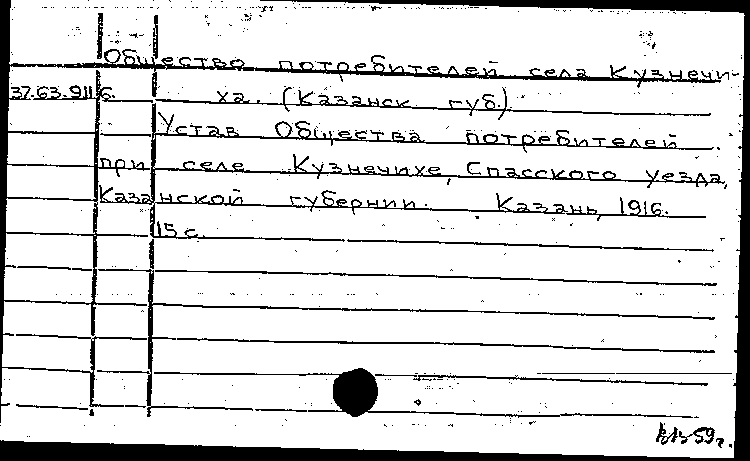 Общество потребителей села Кузнечи-
37.63.9116. ха. (Казанск губ.)
Устав Общества потребителей
при селе Кузнечихе, Спасского уезда,
Казанской губернии. Казань, 1916.
15 с.
59 г.